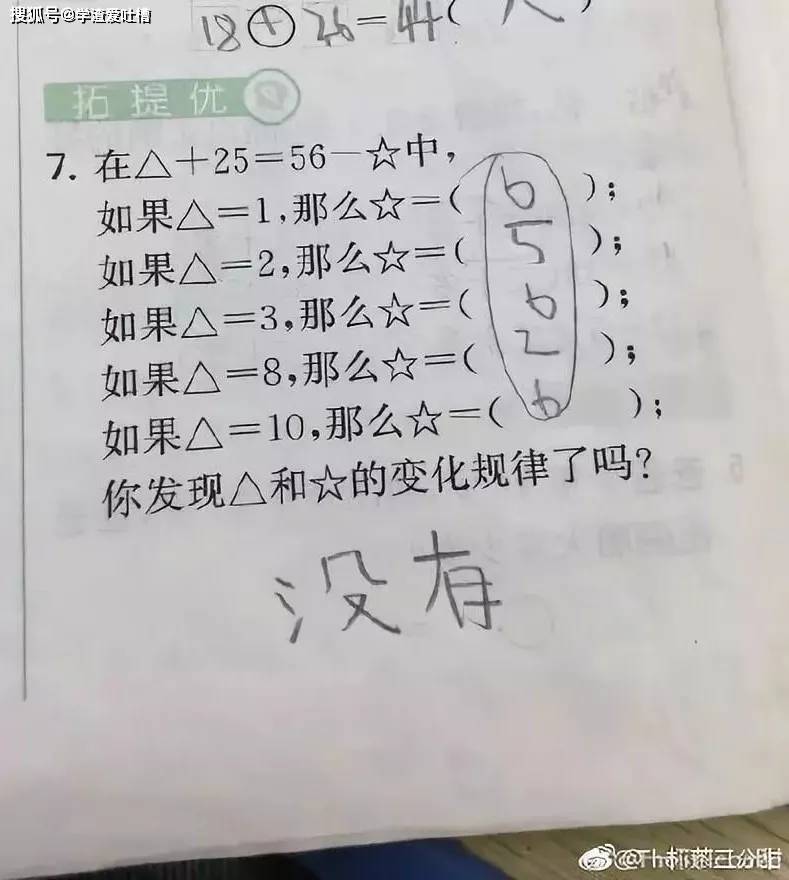 搜狐号@学渣爱吐槽
18+26=44(人)
拓提优
7. 在△+25=56-☆中,
如果△=1,那么☆=( 6 );
如果△=2,那么☆=( 5 );
如果△=3,那么☆=( 6 );
如果△=8,那么☆=( 2 );
如果△=10,那么☆=( 6 );
你发现△和☆的变化规律了吗?
没有